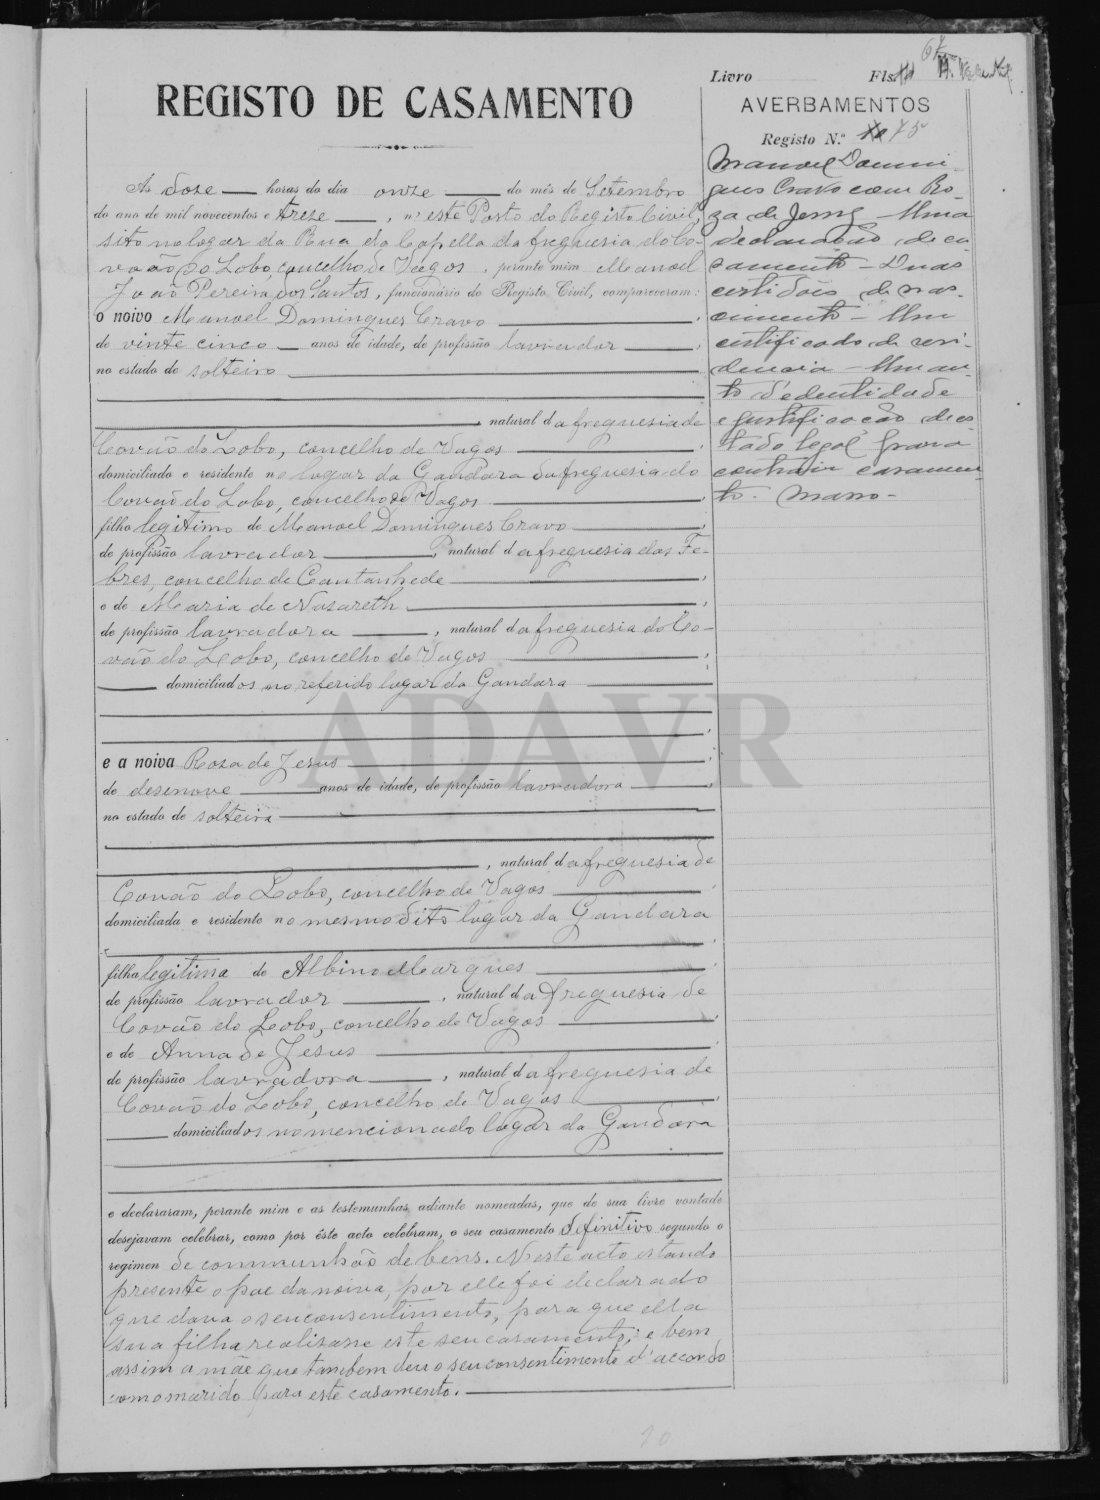 Livro Fls.
67
REGISTO DE CASAMENTO
AVERBAMENTOS
Registo N.º 75
Manoel Domin-
gues Cravo com Ro-
za de Jesus - Uma
declaração de ca-
samento - Duas
certidões de nas-
cimento - Um
certificado de resi-
dencia - Um au-
to d'edentidade
e justificação de es-
tado legal para
contrair casamen-
to. Maço -
Ás doze horas do dia onze do mês de Setembro
do ano de mil novecentos e treze, n'este Posto do Registo Civil,
sito no logar da Rua da Capella da freguesia do Co-
vão do Lobo, concelho de Vagos, perante mim Manoel
João Pereira dos Santos, funcionário do Registo Civil, compareceram:
o noivo Manoel Domingues Cravo,
de vinte cinco anos de idade, de profissão lavrador,
no estado de solteiro
, natural da freguesia de
Covão do Lobo, concelho de Vagos,
domiciliado e residente no logar da Gandara da freguesia do
Covão do Lobo, concelho de Vagos,
filho legitimo de Manoel Domingues Cravo,
de profissão lavrador, natural da freguesia das Fe-
bres, concelho de Cantanhede,
e de Maria de Nasareth,
de profissão lavradora, natural da freguesia do Co-
vão do Lobo, concelho de Vagos;
domiciliados no referido logar da Gandara
ADAVR
e a noiva Rosa de Jesus
de desenove anos de idade, de profissão lavradora,
no estado de solteira
, natural da freguesia de
Covão do Lobo, concelho de Vagos,
domiciliada e residente no mesmo dito logar da Gandara
filha legitima de Albino Marques,
de profissão lavrador, natural da freguesia de
Covão do Lobo, concelho de Vagos,
e de Anna de Jesus,
de profissão lavradora, natural da freguesia de
Covão do Lobo, concelho de Vagos,
domiciliados no mencionado logar da Gandara
e declararam, perante mim e as testemunhas adiante nomeadas, que de sua livre vontade
desejavam celebrar, como por êste acto celebram, o seu casamento definitivo segundo o
regimen de communhão de bens. Neste acto estando
presente o pae da noiva, por elle foi declarado
que dava o seu consentimento, para que ella
sua filha realisasse este seu casamento, e bem
assim a mãe que tambem deu o seu consentimento d'accordo
com o marido para este casamento.